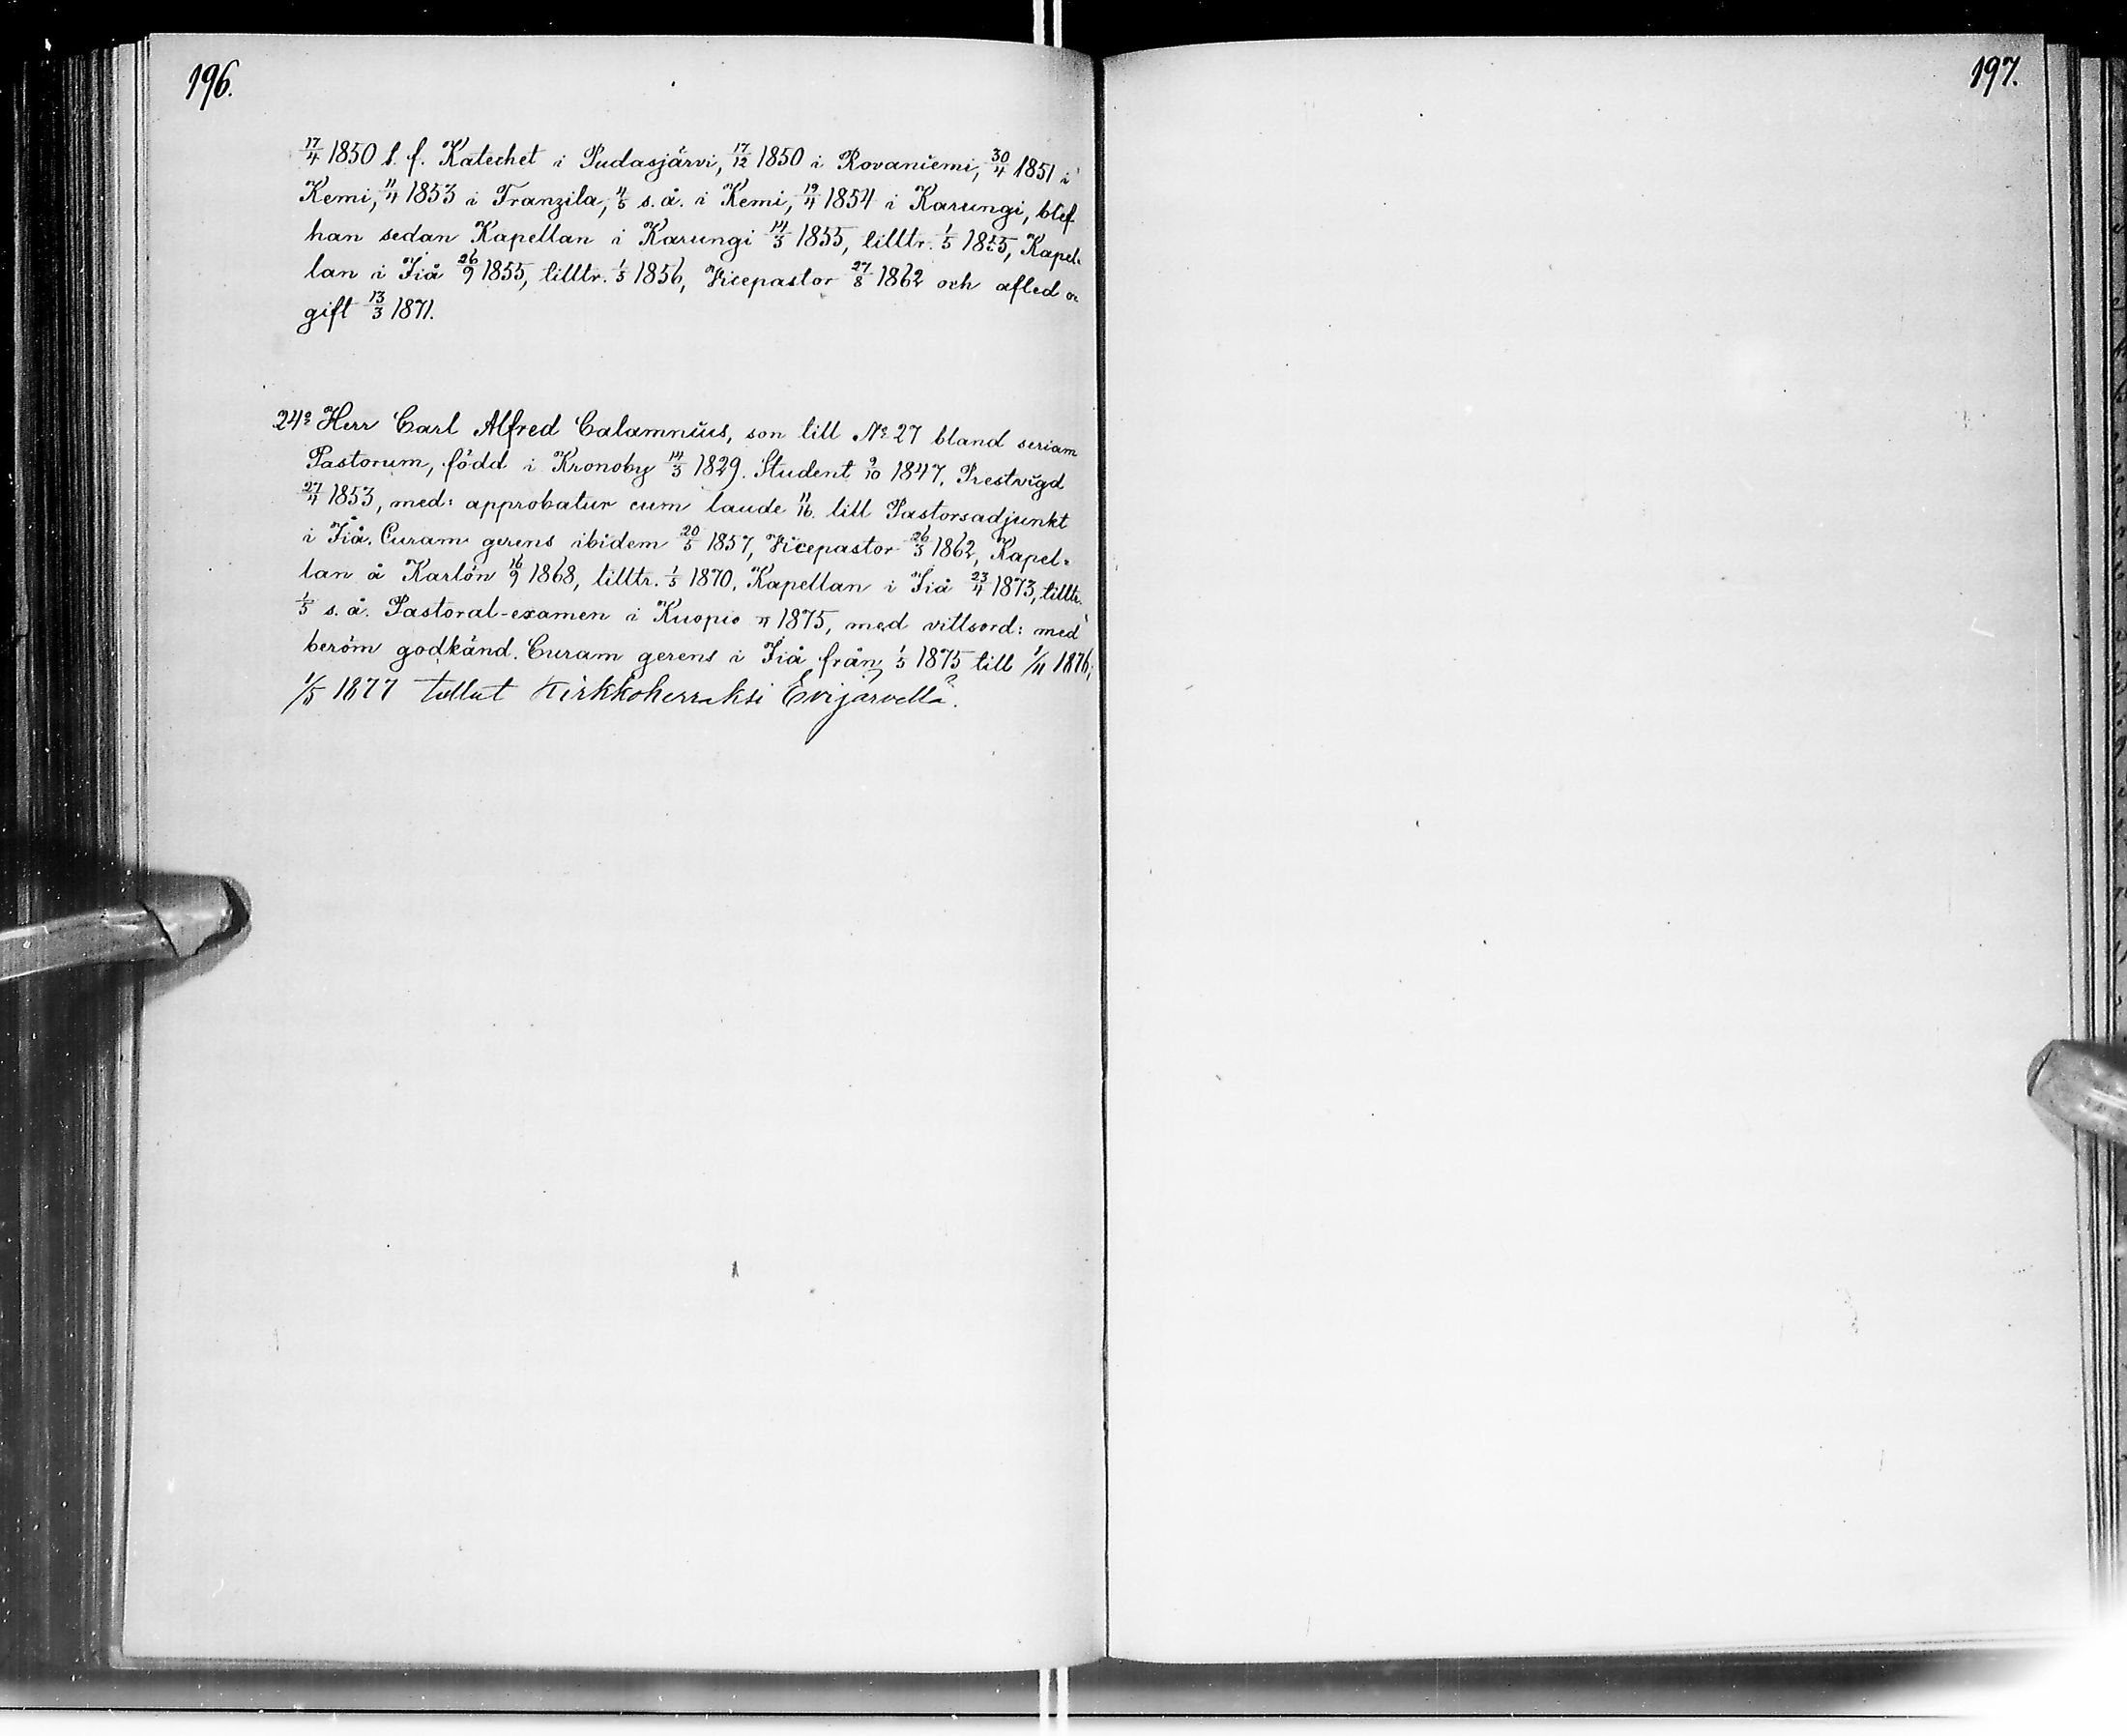 196.
17/4 1850 t. f. Katechet i Pudasjärvi, 17/12 1850 i Rovaniemi, 30/4 1851 i
Kemi, 11/4 1853 i Franzila, 4/5 s. å. i Kemi, 19/4 1854 i Karungi, blef
han sedan Kapellan i Karungi 14/3 1855, tilltr. 1/5 1855, Kapel-
lan i Jiå 26/9 1855, tilltr. 1/5 1856, Vicepastor 27/8 1862 och afled o
gift 13/3 1871.
24o Herr Carl Alfred Calamnius, son till No 27 bland seriam
Pastorum, född i Kronoby 14/3 1829. Student 9/10 1847. Prestvigd
27/4 1853, med: approbatur cum laude 11/16. till Pastorsadjunkt
i Jiå. Curam gerens ibidem 20/5 1857, Vicepastor 26/3 1862, Kapel-
lan å Karlön 16/9 1868, tilltr. 1/5 1870. Kapellan i Jiå 23/4 1873, tilltr.
1/5 s. å. Pastoral-examen i Kuopio 1875, med vittsord: med
beröm godkänd. Curam gerens i Jiå från 1/5 1875 till 1/11 1876,
1/5 1877 tullut Kirkkoherraksi Evijärvellä.
197.